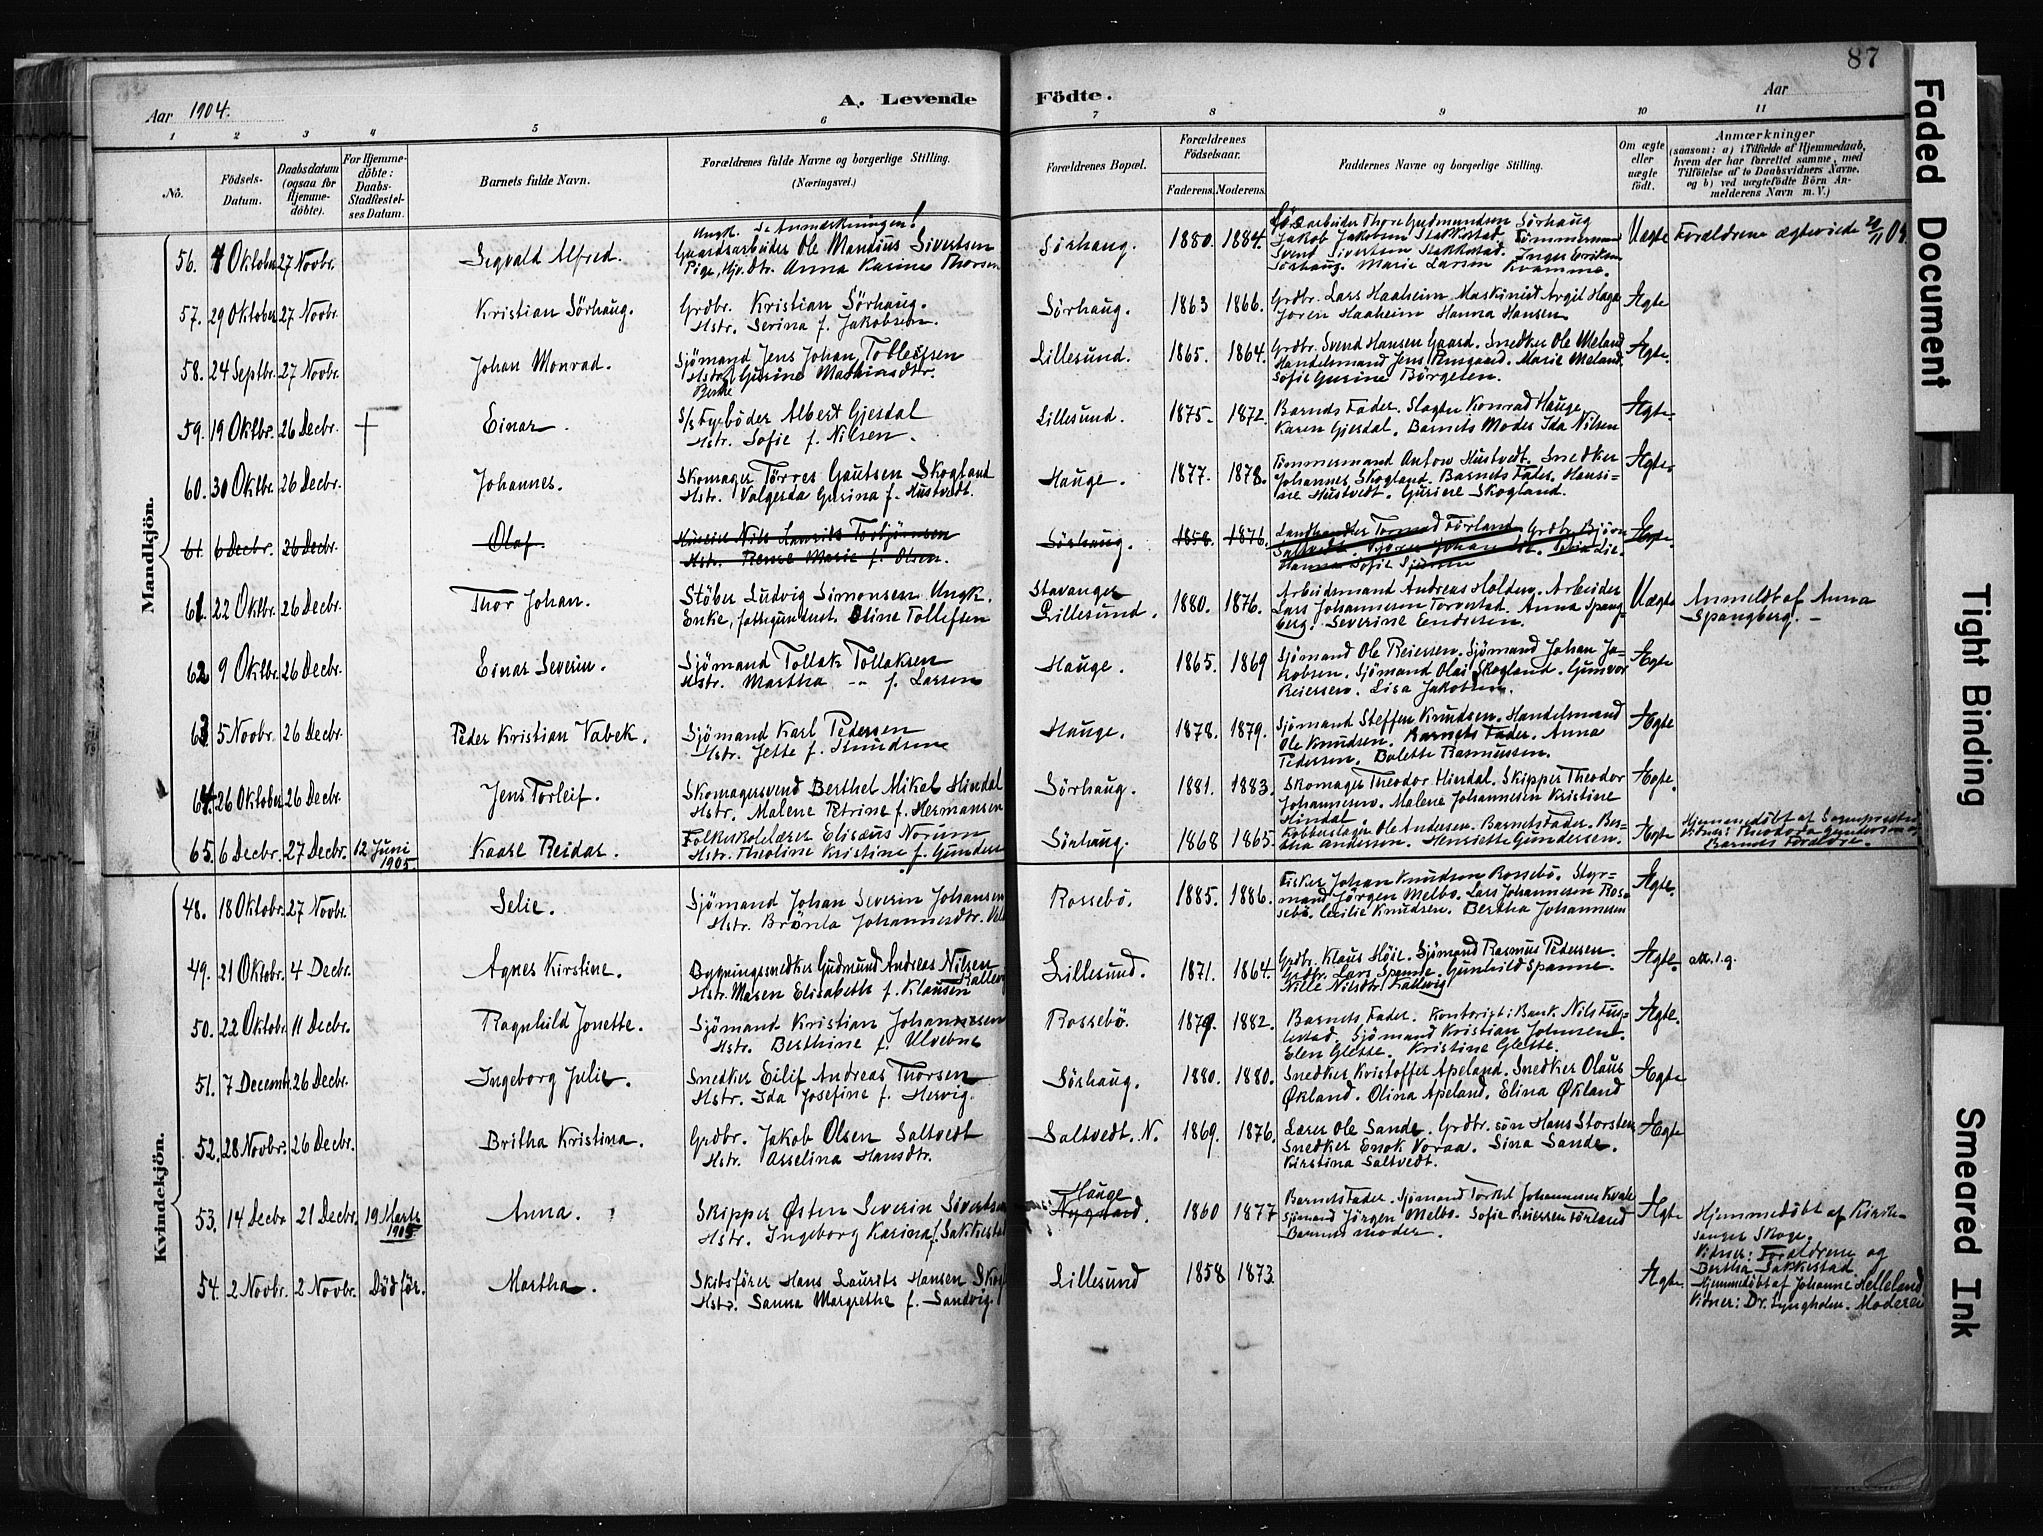 87
Aar 1904.
A. Levende Födte.
Aar
1 2 3 4 5 6 7 8 9 10 11
No.
Födsels-Datum.
Daabsdatum (ogsaa for Hjemme-döbte).
For Hjemme-döbte: Daabs-Stadfæstel-ses Datum.
Barnets fulde Navn.
Forældrenes fulde Navne og borgerlige Stilling. (Næringsvei.)
Forældrenes Bopæl.
Forældrenes Födselsaar.
Faderens. Moderens.
Faddernes Navne og borgerlige Stilling.
Om ægte eller uægte födt.
Anmærkninger
(saasom: a) i Tilfælde af Hjemmedaab, hvem der har forrettet samme, med Tilföielse af to Daabsvidners Navne. og b) ved uægtefödte Börn An-melderens Navn m. V.)
Mandkjön.
Ungk. Se Anmærkningen!
56. 4 Oktober 27 Novbr. Segvald Alfred. Gaardsarbeider Ole Mandius Sivertsen
Pige, Hjv. Dtr. Anna Karine Thorsen
Sörhaug. 1880. 1884. arbeider Thore Gudmundsen Sörhaug
Jakob Jakobsen Stakkestad. Tömmermand
Svend Sivertsen Stakkestad. Inger Eriksen
Sörhaug. Marie Larsen Kvamme.
Uægte Forældrene ægteviede 20/11 04.
57. 29 Oktober 27 Novbr. Kristian Sörhaug. Grdbr. Kristian Sörhaug.
Hstr. Serina f. Jakobsen.
Sörhaug. 1863 1866. Grdbr. Lars Haaheim. Maskinist Argil Haga
Joren Haaheim Hanna Hansen Ægte
58. 24 Septbr. 27 Novbr. Johan Monrad. Sjömand Jens Johan Tollefsen
Hstr. Gurine Mathiasdtr.
Lillesund. 1865. 1864. Grdbr. Svend Hansen Gaard. Snedker Ole Meland
Handelsmand Jens . Marie Meland.
Sofie Gurine Börgesen. Ægte.
59. 19 Oktbr. 26 Decbr. Einar. S/s Fyrböder Albert Gjesdal
Hstr. Sofie f. Nilsen.
Lillesund. 1875. 1872. Barnets Fader. Slagter Konrad Hauge
Karen Gjesdal. Barnets Moder Ida Nilsen Ægte.
60. 30 Oktbr. 26 Decbr. Johannes. Skomager Törres Gautsen Skogland
Hstr. Valgerda Gurina f. Hustvedt.
Hauge. 1877. 1878. Tömmermand Anton Hustvedt. Snedker
Johannes Skogland. Barnets Fader. Hansi-
ne Hustvedt. Gurine Skogland. Ægte.
61. 6 Decbr. 26 Decbr. Olaf. Nils Laurits Torbjörnsen
Hstr. Marie f. Olsen.
Sörhaug. 1858. 1876. Landhandler Tormod Förland. Grdbr. Björn
Saltvedt.
Hanna Sofie Ægte.
61. 22 Oktbr. 26 Decbr. Thor Johan. Stöber Ludvig Simonsen. Ungk.
Enke, fattigunderst. Eline Tollefsen
Stavanger
Lillesund. 1880. 1876. Arbeidsmand Andreas Holden. Arbeider
Lars Johannesen Torvestad. Anna Spang-
berg. Severine Endresen. Uægte Anmeldt af Anna
Spangberg. –
62 9 Oktbr. 26 Decbr. Einar Severin. Sjömand Tollak Tollaksen
Hstr. Martha -"- f. Larsen
Hauge. 1865. 1869 Sjömand Ole Reiersen. Sjömand Johan Ja-
kobsen. Sjömand Olai Skogland. Gunvor
Reiersen. Lisa Jakobsen. Ægte
63 5 Novbr. 26 Decbr. Peder Kristian Vabek. Sjömand Karl Pedersen
Hstr. Jette f. Knudsen
Hauge. 1878. 1879. Sjömand Steffen Knudsen. Handelsmand
Ole Knudsen. Barnets Fader. Anna
Pedersen. Bolette Rasmussen. Ægte
64. 26 Oktober 26 Decbr. Jens Torleif. Skomagersvend Berthel Mikal Hindal
Hstr. Malene Petrine f. Hermansen
Sörhaug. 1881. 1883. Skomager Theodor Hindal. Skipper Theodor
Johannesen. Malene Johannesen Kristine
Hindal. Ægte.
65. 6 Decbr. 27 Decbr. 12 Juni 1905. Kaare Reidar. Folkeskolelærer Elisæus Norum
Hstr. Theoline Kristine f. Gunders
Sörhaug. 1868 1865. Kobberslager Ole Andersen. Barnets Fader. Ber-
tha Andersen. Henriette Gundersen. Ægte Hjemmedöbt af Sognepresten
Vidner: Theodora Gundersen og
Barnets Forældre.
Kvindekjön.
48. 18 Oktobr. 27 Novbr. Selie. Sjömand Johan Severin Johansen
Hstr. Brönla Johannesdtr.
Rossebö. 1885. 1886. Fisker Johan Knudsen Rossebö. Styr-
mand Jörgen Melbo. Lars Johannesen Ros-
sebö. Cecilie Knudsen. Bertha Johannesen Ægte.
49. 21 Oktobr. 4 Decbr. Agnes Kirstine. Bygningssnedker Gudmund Andreas Nilsen
Hstr. Maren Elisabeth f. Klausen Kallevig
Lillesund. 1871. 1864. Grdbr. Klaus Höie. Sjömand Rasmus Pedersen.
Grdbr. Lars Spanne. Gunhild Spanne.
Nille Nilsdtr. Kallevig Ægte. att. 1.g.
50. 22 Oktobr. 11 Decbr. Ragnhild Jonette. Sjömand Kristian Johannessen
Hstr. Berthine f. Ulvebne
Rossebö. 1879. 1882. Barnets Fader. Kontorist i Bank. Nils Fug-
lestad. Sjömand Kristian Johnsen.
Elen Glette. Kristine Glette. Ægte.
51. 7 Decembr. 26 Decbr. Ingeborg Julie. Snedker Eilif Andreas Thorsen
Hstr. Ida Josefine f. Hervig.
Sörhaug. 1880. 1880. Snedker Kristoffer Apeland. Snedker Olaus
Økland. Olina Apeland. Elina Økland Ægte
52. 28 Novbr. 26 Decbr. Britha Kristina. Grdbr. Jakob Olsen Saltvedt
Hstr. Asselina Hansdtr.
Saltvedt. N. 1869. 1876. Lærer Ole Sande. Grdbr. sön Hans Storsten
Snedker Enok Voraa. Sina Sande.
Kirstina Saltvedt. Ægte
53. 14 Decbr. 21 Decbr. 19 Marts 1905 Anna. Skipper Østen Severin Sivertsen
Hstr. Ingeborg Karina f. Sakkestad
Hauge
. 1860 1877 Barnets Fader. Sjömand Torkel Johannesen Kvale
Sjömand Jörgen Melbo. Sofie Reiersen Förland
Barnets moder. Ægte Hjemmedöbt af Kirke-
sanger Skoge.
Vidner: Forældrene og
Bertha Sakkestad
54. 2 Novbr. 2 Novbr. Död för. Martha. Skibsförer Hans Laurits Hansen
Hstr. Sanna Margrethe f. Sandvig.
Lillesund 1858 1873 Ægte. Hjemmedöbt af Johanne Helleland
Vidner: Dr. Lyngholm. Moderen
Faded Document
Tight Binding
Smeared Ink